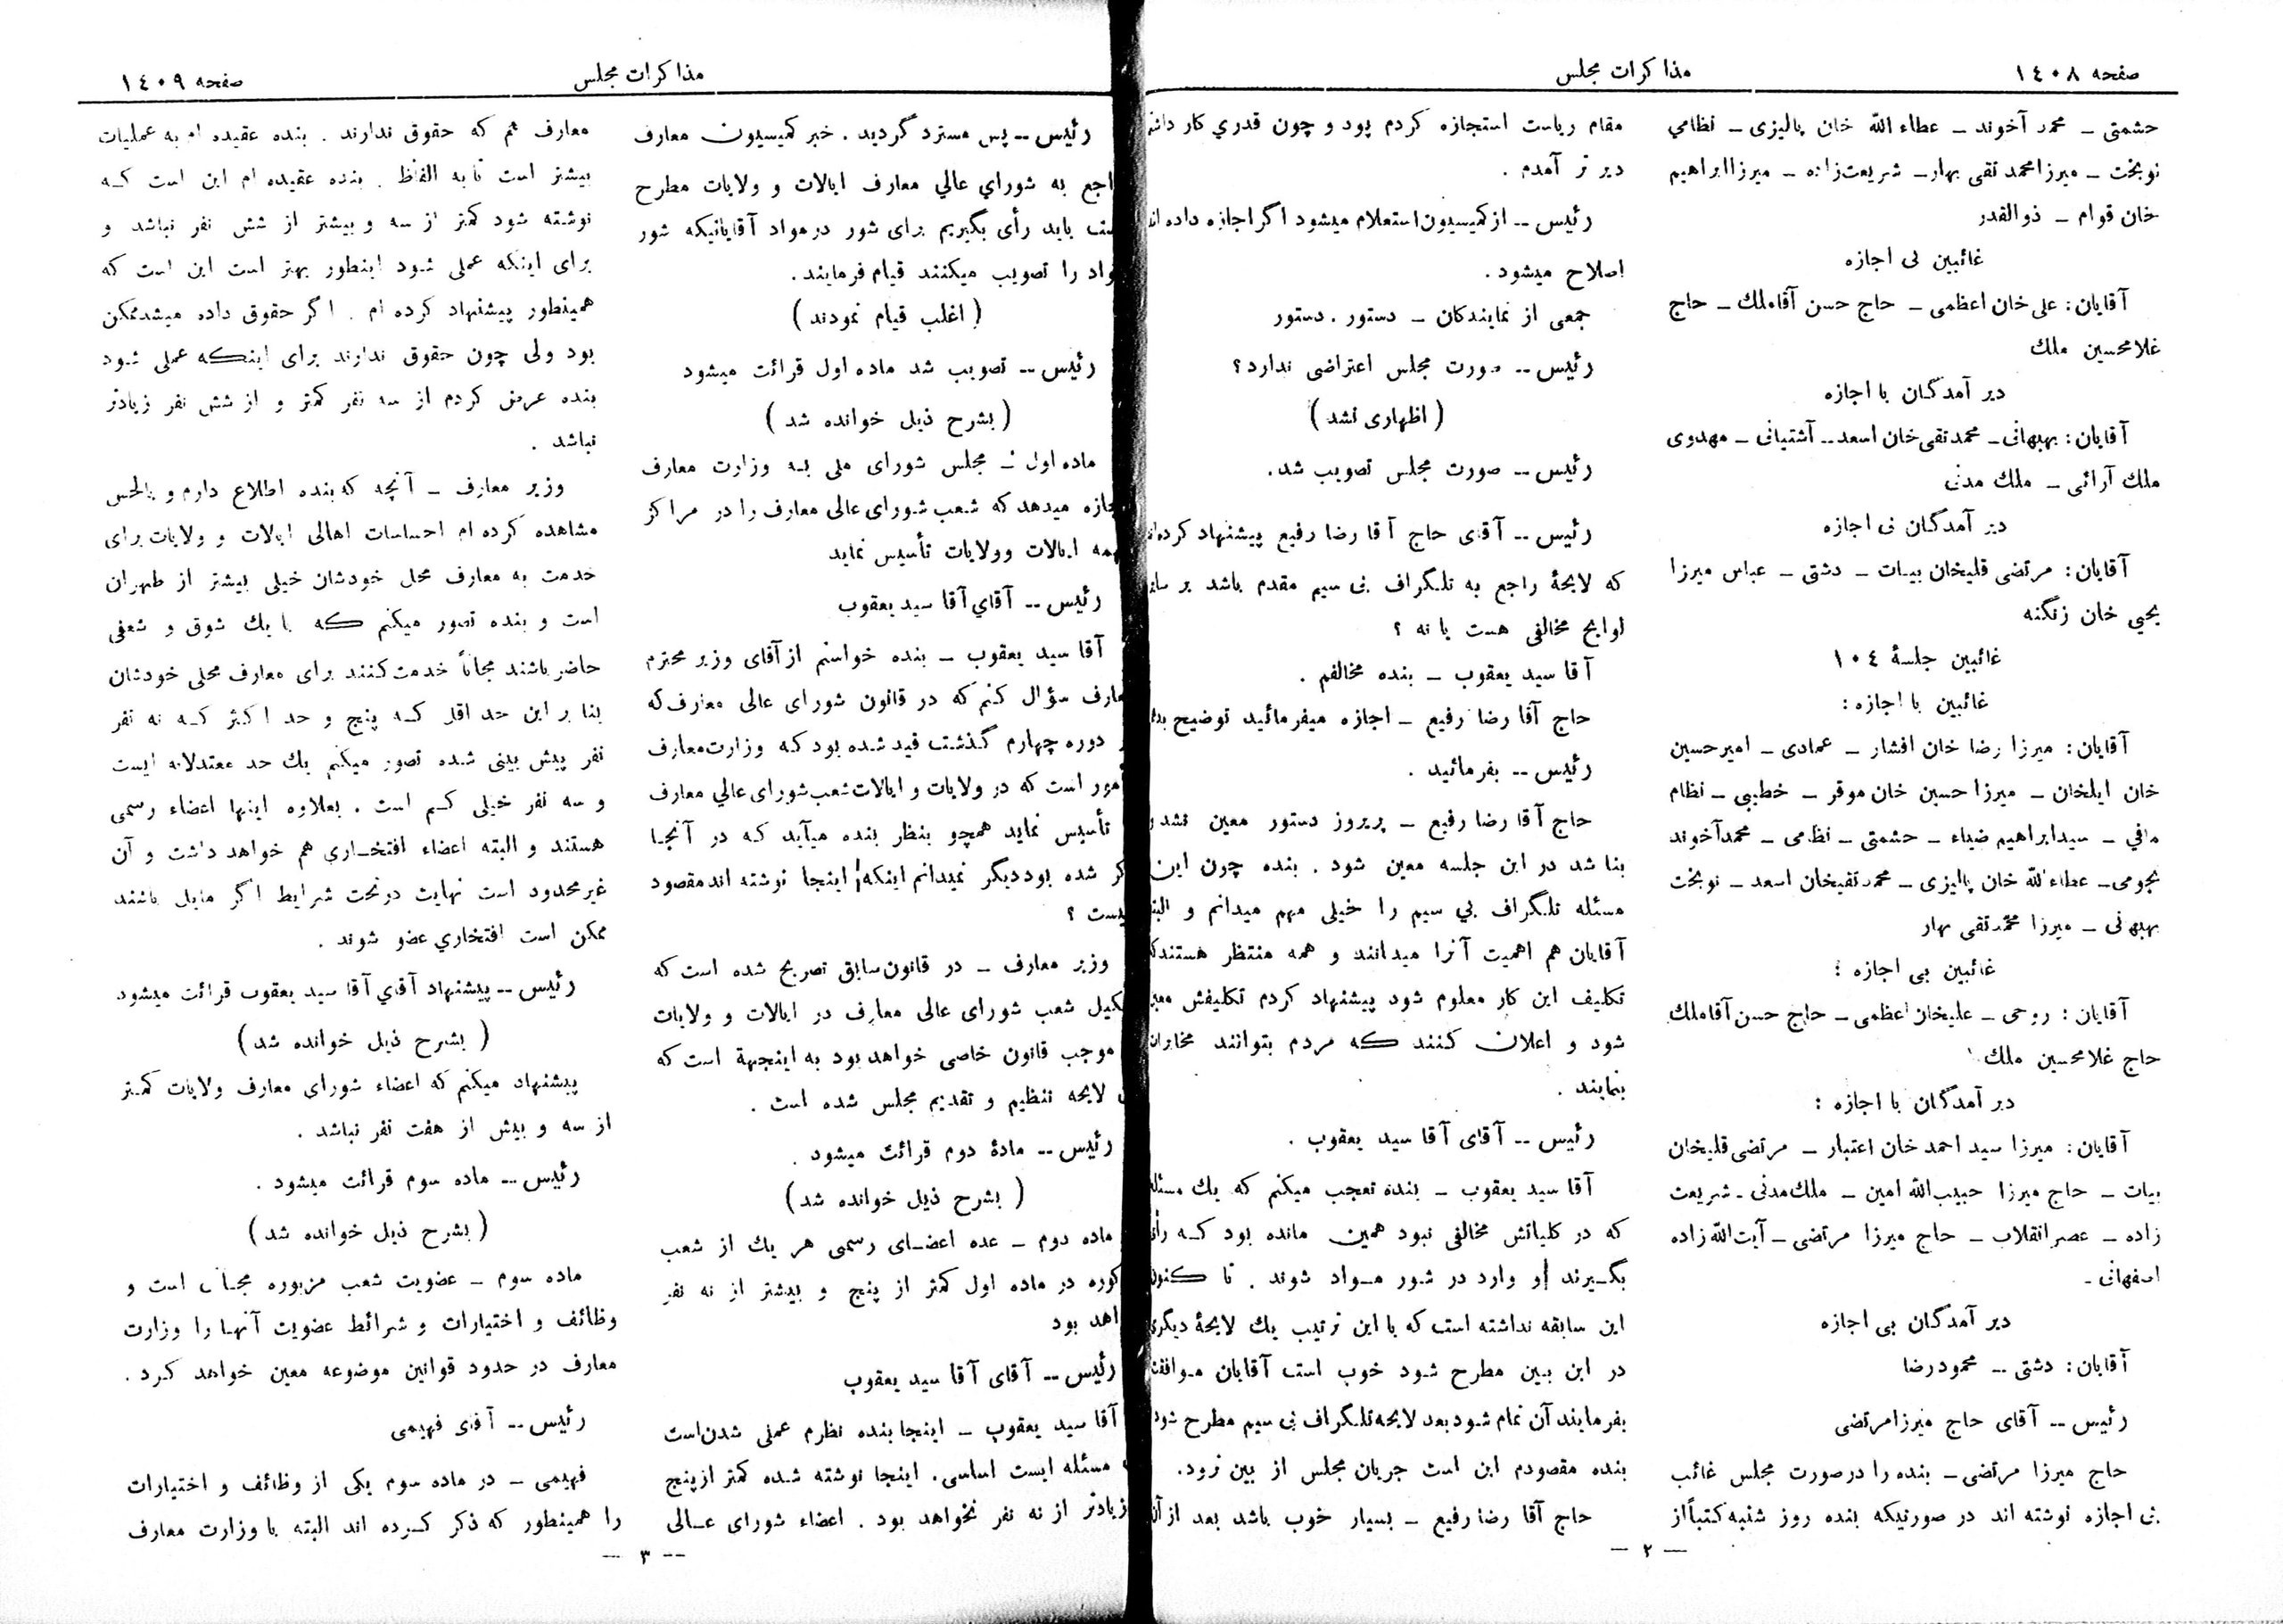 صفحه ١٤٠٨
مذاکرات مجلس
حشمتی ــ محمد آخوند ــ عطاء الله خان پالیزی ــ نظامی
نوبخت ــ میرزا محمد تقی بهار ــ شریعت‌زاده ــ میرزا ابراهیم
خان قوام ــ ذوالقدر
غائبین بی اجازه
آقایان : علی خان اعظمی ــ حاج حسن آقا ملك ــ حاج
غلامحسین ملك
دیر آمدگان با اجازه
آقایان : بهبهانی ــ محمد تقی خان اسعد ــ آشتیانی ــ مهدوی
ملك آرائی ــ ملك مدنی
دیر آمدگان بی اجازه
آقایان : مرتضی قلیخان بیات ــ دشتی ــ عباس میرزا
یحیی خان زنگنه
غائبین جلسهٔ ١٠٤
غائبین با اجازه :
آقایان : میرزا رضا خان افشار ــ عمادی ــ امیر حسین
خان ایلخان ــ میرزا حسین خان موقر ــ خطیبی ــ نظام
مافی ــ سید ابراهیم ضیاء ــ حشمتی ــ نظامی ــ محمد آخوند
نجومی ــ عطاء الله خان پالیزی ــ محمد تقیخان اسعد ــ نوبخت
بهبهانی ــ میرزا محمد تقی بهار
غائبین بی اجازه :
آقایان : روحی ــ علیخان اعظمی ــ حاج حسن آقا ملك
حاج غلامحسین ملك
دیر آمدگان با اجازه :
آقایان : میرزا سید احمد خان اعتبار ــ مرتضی قلیخان
بیات ــ حاج میرزا حبیب الله امین ــ ملك مدنی ــ شریعت
زاده ــ عصر انقلاب ــ حاج میرزا مرتضی ــ آیت الله زاده
اصفهانی ــ
دیر آمدگان بی اجازه
آقایان : دشتی ــ محمود رضا
رئیس ــ آقای حاج میرزا مرتضی
حاج میرزا مرتضی ــ بنده را در صورت مجلس غائب
بی اجازه نوشته اند در صورتیکه بنده روز شنبه کتباً از
مقام ریاست استجازه کردم بود و چون قدری کار داشتم
دیر تر آمدم .
رئیس ــ از کمیسیون استعلام میشود اگر اجازه داده اند
اصلاح میشود .
جمعی از نمایندگان ــ دستور . دستور
رئیس ــ صورت مجلس اعتراضی ندارد ؟
( اظهاری نشد )
رئیس ــ صورت مجلس تصویب شد .
رئیس ــ آقای حاج آقا رضا رفیع پیشنهاد کرده‌اند
که لایحهٔ راجع به تلگراف بی سیم مقدم باشد بر سایر
لوایح مخالفی هست یا نه ؟
آقا سید یعقوب ــ بنده مخالفم .
حاج آقا رضا رفیع ــ اجازه میفرمائید توضیح بدهم
رئیس ــ بفرمائید .
حاج آقا رضا رفیع ــ پریروز دستور معین نشد و
بنا شد در این جلسه معین شود . بنده چون این
مسئله تلگراف بی سیم را خیلی مهم میدانم و البته
آقایان هم اهمیت آنرا میدانند و همه منتظر هستند که
تکلیف این کار معلوم شود پیشنهاد کردم تکلیفش معین
شود و اعلان کنند که مردم بتوانند مخابرات
بنمایند .
رئیس ــ آقای آقا سید یعقوب .
آقا سید یعقوب ــ بنده تعجب میکنم که یك مسئله
که در کلیاتش مخالفی نبود همین مانده بود که رأی
بگیرند و وارد در شور مواد شوند . تا کنون
این سابقه نداشته است که با این ترتیب یك لایحهٔ دیگری
در این بین مطرح شود خوب است آقایان موافقت
بفرمایند آن تمام شود بعد لایحه تلگراف بی سیم مطرح شود
بنده مقصودم این است جریان مجلس از بین نرود .
حاج آقا رضا رفیع ــ بسیار خوب باشد بعد از آن
— ٢ —
مذاکرات مجلس
صفحه ١٤٠٩
رئیس ــ پس مسترد گردید . خبر کمیسیون معارف
راجع به شورای عالی معارف ایالات و ولایات مطرح
است باید رأی بگیریم برای شور در مواد آقایانیکه شور
مواد را تصویب میکنند قیام فرمایند .
( اغلب قیام نمودند )
رئیس ــ تصویب شد ماده اول قرائت میشود
( بشرح ذیل خوانده شد )
ماده اول ــ مجلس شورای ملی به وزارت معارف
اجازه میدهد که شعب شورای عالی معارف را در مراکز
مهمه ایالات و ولایات تأسیس نماید
رئیس ــ آقای آقا سید یعقوب
آقا سید یعقوب ــ بنده خواستم از آقای وزیر محترم
معارف سؤال کنم که در قانون شورای عالی معارف که
در دوره چهارم گذشت قید شده بود که وزارت معارف
مأمور است که در ولایات و ایالات شعب شورای عالی معارف
تأسیس نماید همچو بنظر بنده میآید که در آنجا
ذکر شده بود دیگر نمیدانم اینکه اینجا نوشته اند مقصود
چیست ؟
وزیر معارف ــ در قانون سابق تصریح شده است که
تشکیل شعب شورای عالی معارف در ایالات و ولایات
موجب قانون خاصی خواهد بود به اینجهة است که
لایحه تنظیم و تقدیم مجلس شده است .
رئیس ــ مادهٔ دوم قرائت میشود .
( بشرح ذیل خوانده شد )
ماده دوم ــ عده اعضای رسمی هر یك از شعب
مذکوره در ماده اول کمتر از پنج و بیشتر از نه نفر
نخواهد بود
رئیس ــ آقای آقا سید یعقوب
آقا سید یعقوب ــ اینجا بنده نظرم عملی شدن است
مسئله ایست اساسی . اینجا نوشته شده کمتر از پنج
زیادتر از نه نفر نخواهد بود . اعضاء شورای عالی
معارف هم که حقوق ندارند . بنده عقیده ام به عملیات
بیشتر است تا به الفاظ . بنده عقیده ام این است که
نوشته شود کمتر از سه و بیشتر از شش نفر نباشد و
برای اینکه عملی شود اینطور بهتر است این است که
همینطور پیشنهاد کرده ام . اگر حقوق داده میشد ممکن
بود ولی چون حقوق ندارند برای اینکه عملی شود
بنده عرض کردم از سه نفر کمتر و از شش نفر زیادتر
نباشد .
وزیر معارف ــ آنچه که بنده اطلاع دارم و بالحس
مشاهده کرده ام احساسات اهالی ایالات و ولایات برای
خدمت به معارف محل خودشان خیلی بیشتر از طهران
است و بنده تصور میکنم که با یك شوق و شعفی
حاضر باشند مجاناً خدمت کنند برای معارف محلی خودشان
بنا بر این حد اقل که پنج و حد اکثر که نه نفر
نفر پیش بینی شده تصور میکنم یك حد معتدلانه ایست
و سه نفر خیلی کم است . بعلاوه اینها اعضاء رسمی
هستند و البته اعضاء افتخاری هم خواهد داشت و آن
غیر محدود است نهایت در تحت شرایط اگر مایل باشند
ممکن است افتخاری عضو شوند .
رئیس ــ پیشنهاد آقای آقا سید یعقوب قرائت میشود
( بشرح ذیل خوانده شد )
پیشنهاد میکنم که اعضاء شورای معارف ولایات کمتر
از سه و بیش از هفت نفر نباشد .
رئیس ــ ماده سوم قرائت میشود .
( بشرح ذیل خوانده شد )
ماده سوم ــ عضویت شعب مزبوره مجانی است و
وظائف و اختیارات و شرائط عضویت آنها را وزارت
معارف در حدود قوانین موضوعه معین خواهد کرد .
رئیس ــ آقای فهیمی
فهیمی ــ در ماده سوم یکی از وظائف و اختیارات
را همینطور که ذکر کرده اند البته با وزارت معارف
— ٣ —